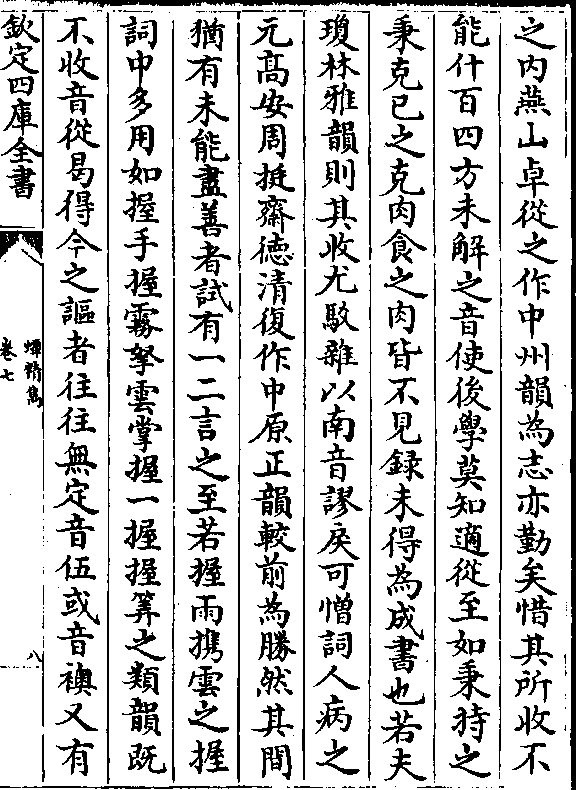 之内燕山卓從之作中州韻為志亦勤矣惜其所收不
能什百四方未解之音使後學莫知適從至如秉持之
秉克已之克肉食之肉皆不見録未得為成書也若夫
瓊林雅韻則其收尤駁雜以南音謬戾可憎詞人病之
元髙安周挺齋徳清復作中原正韻較前為勝然其間
猶有未能盡善者試有一二言之至若握雨携雲之握
詞中多用如握手握霧拏雲掌握一握握筭之類韻既
不收音從曷得今之謳者往往無定音伍或音襖又有
欽定四庫全書
煙霞小説
卷七
八